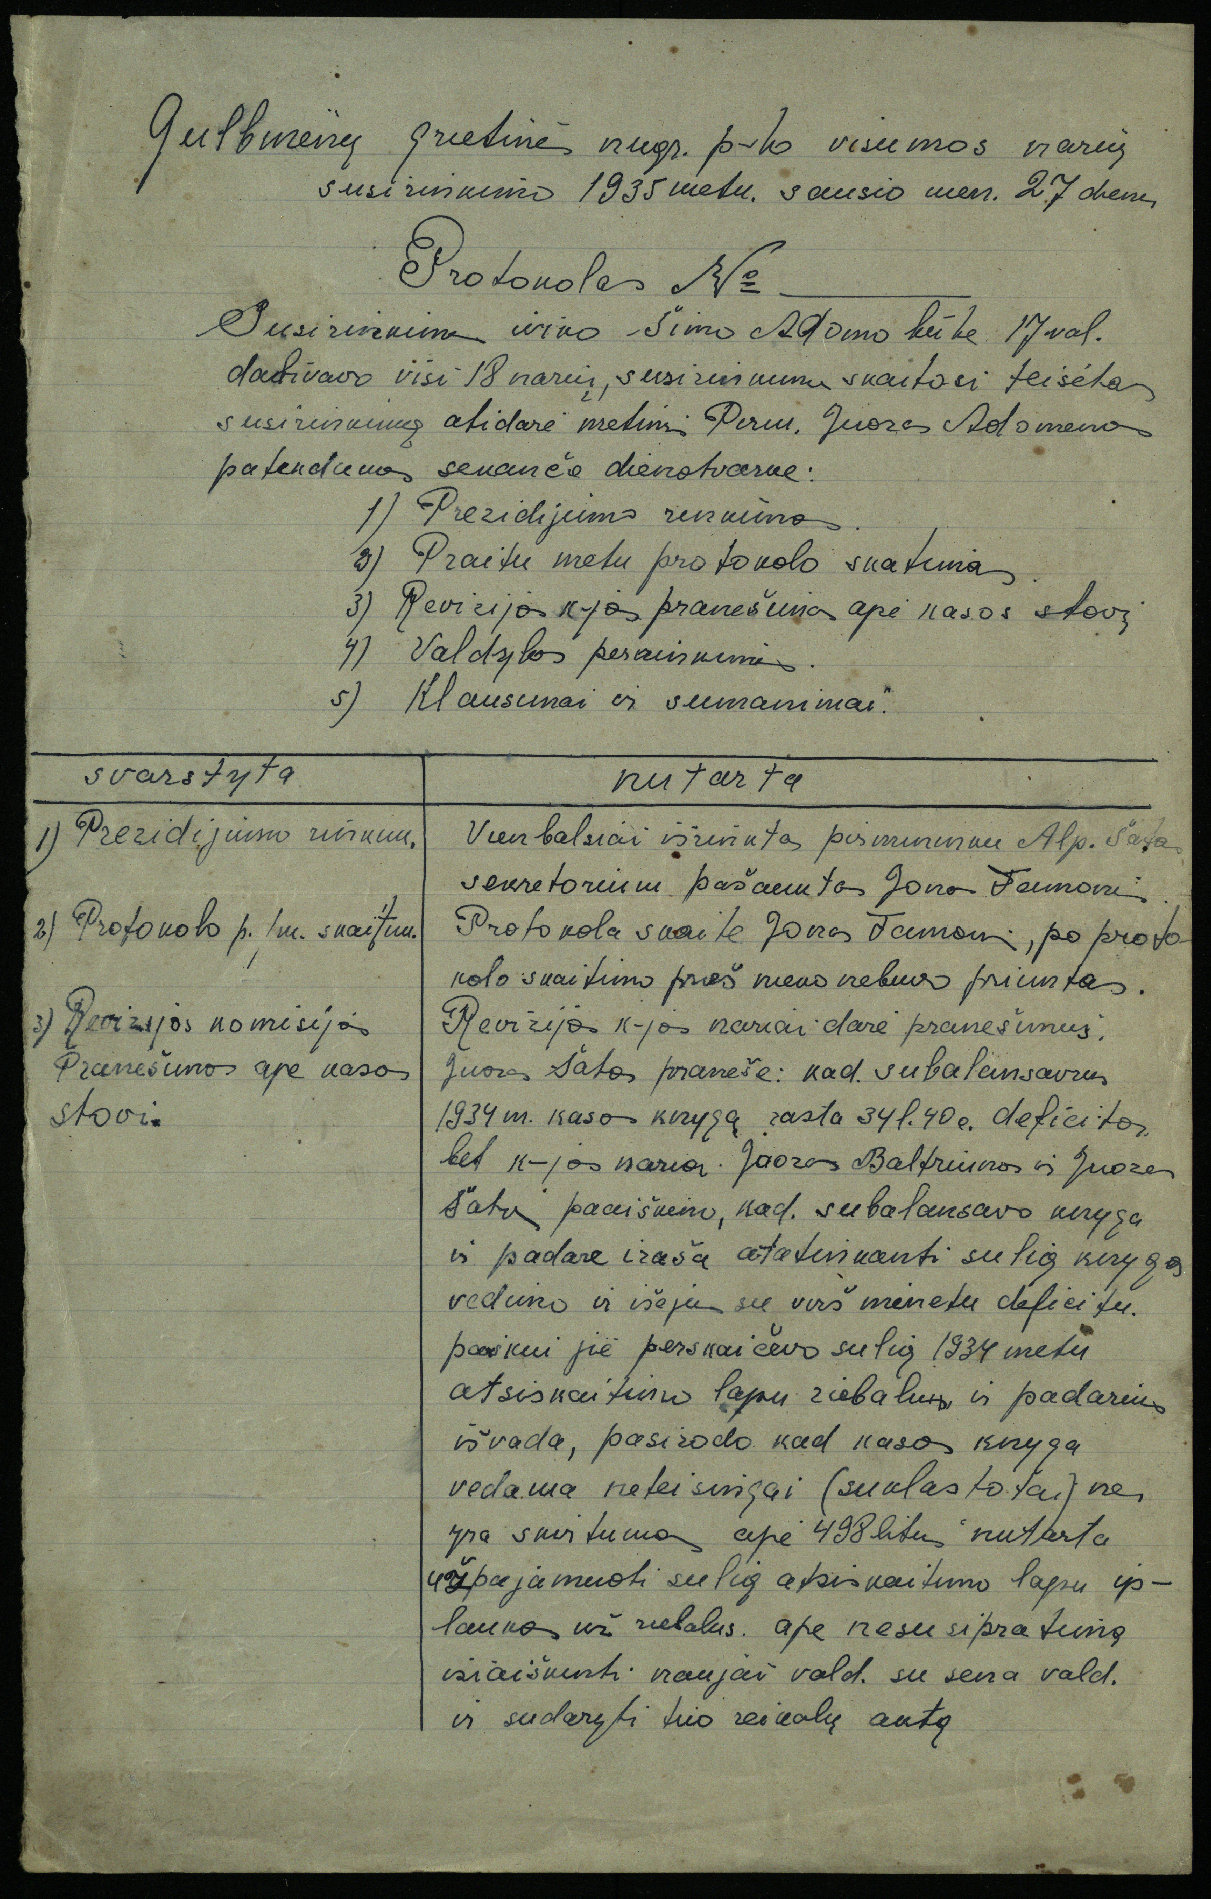 Gulbinėnų grietinės nugr. p-to visumos narių
susirinkimo 1935 metu. sausio men. 27 dieną
Protokolas №
Susirinkimas įviko Šimo Adomo būte 17 val.
dalivavo visi 18 narių, susirinkimas skaitosi teisėtas
susirinkimą atidarė metinis Perm. Juozas Adomenas
patekdamas sekančia dienotvarke:
1) Prezidijumo rinkimas.
2) Praitu metu protokolo skatimas.
3) Revizijos k-jos pranešimas apie kasos stovį
4) Valdybos perainkimas.
5) Klausimai ir sumanimai.
svarstyta
nutarta
1) Prezidijumo rinkim.
Vienbalsiai išrinktas pirmininku Alp. Šatas
sekretorium pašauktas Jonas Tamonis.
2) Protokolo p. /m. skaitim.
Protokola skaitė Jonas Tamonis, po proto-
kolo skaitimo prieš nieko nebuvo priimtas.
3) Revizijos komisijos
Pranešimas ape kasos
stovi.
Revizijos k-jos nariai darė pranešimus.
Juozas Šatas pranešė: kad. subalansavus
1934 m. kasos knygą rasta 34 l. 40 c. deficitas,
bet k-jos nariai. Juozas Baltriunas ir Juozas
Šatas paaiškino, kad. subalansavo knyga
ir padarė iraša atatinkanti sulig knygos
vedimo ir išėjus su virš minėtu deficitu.
paskui jie perskaičiavo sulig 1934 metu
atsiskaitimo lapu riebalus ir padarius
išvada, pasirodo kad kasos knyga
vedama neteisingai (suklastotai) nes
yra skirtumas apie 498 litus nutarta
užpajamuoti sulig atsiskaitimo lapu ip-
laukas už riebalus. ape nesusipratimą
išiaiškinti naujai vald. su sena vald.
ir sudaryti tuo reikalų aktą